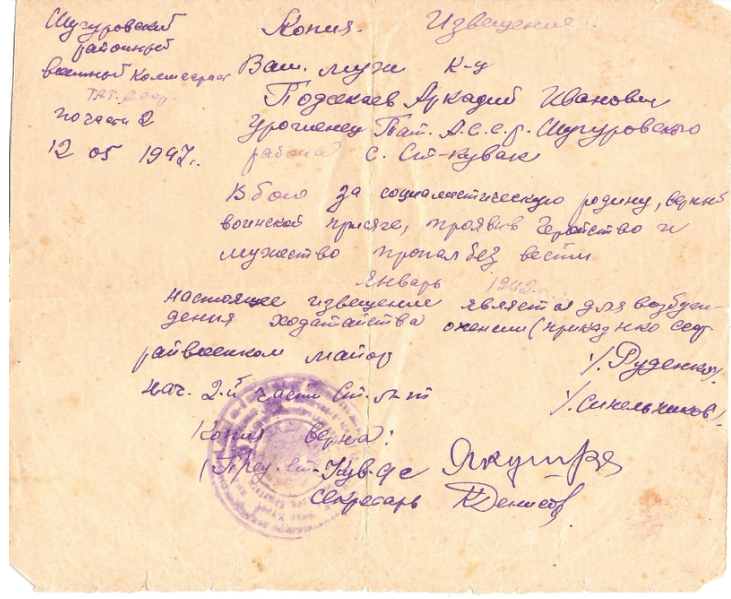 Шугуровский
районный
военный Комиссариат
ТАТ. АССР
по части 2
12 05 1947г.
Копия. Извещение.
Ваш муж к-ц
Подсекаев Аркадий Иванович
Уроженец Тат. А.С.С.Р. Шугуровского
района с. Ст-Кувак
В бою за социалистическую родину, верный
воинской присяге, проявив геройство и
мужество пропал без вести
Январь 1942г.
Настоящее извещение является для возбуж-
дения ходатайства о пенсии (приказ нко ссср
райвоенком майор /.Руденко/.
нач. 2-й части Ст. л-т /.Синельников/.
Копия верна:
Пред. Ст-Кув. с/с
Секретарь